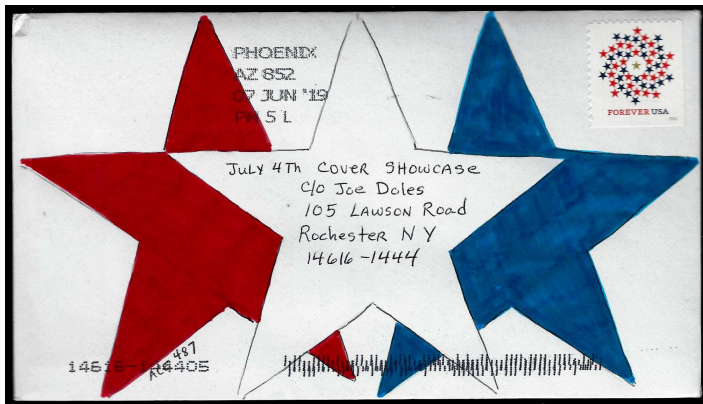 PHOENIX
AZ 852
07 JUN '19
PM 5 L
FOREVER USA
July 4th Cover Showcase
C/o Joe Doles
105 Lawson Road
Rochester N Y
14616-1444